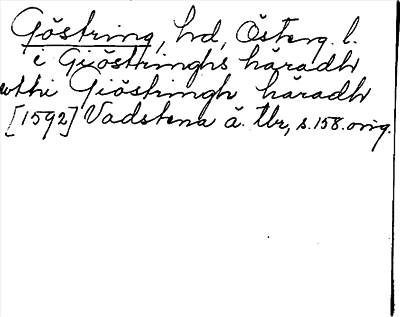 Göstring, hd, Österg. l.
i Giöstringhs häradh
wthi Giöstringh häradh
[1592] Vadstena ä. tbr, s.158.orig.